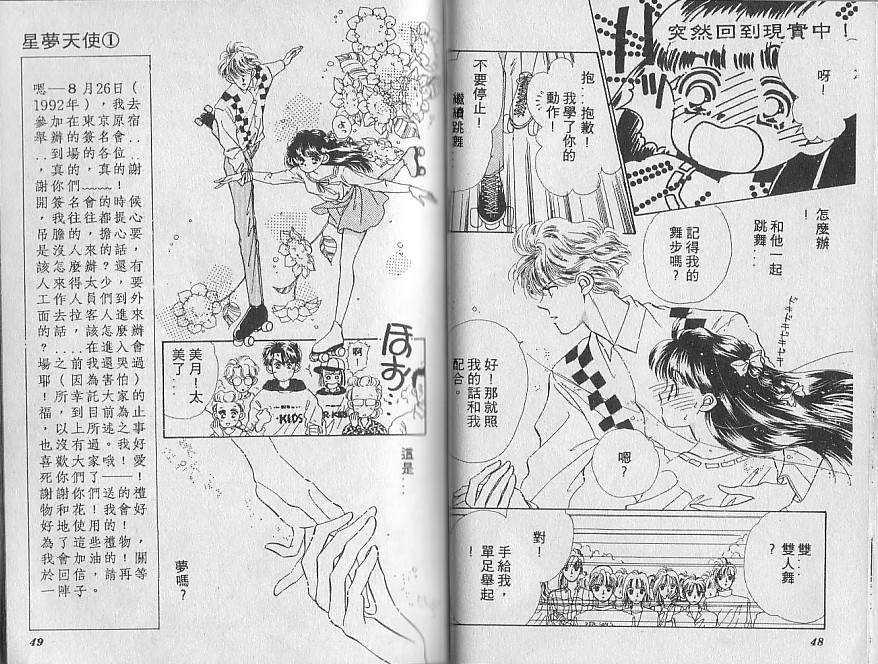 突然回到現實中！
呀！
抱…抱歉！
我學了你的
動作！
不要停止！
繼續跳舞
怎麼辦
！
和他一起
跳舞…
記得我的
舞步嗎？
ドキドキドキドキ
好！那就照
我的話和我
配合。
嗯？
雙…
雙人舞
？
對！
手給我，
單足舉起
48
啊！
ほお…
美月！太
美了…
KIDS
R-KIDS
這是…
夢嗎？
星夢天使①
嗯—8月26日（
1992年），我去
參加在東京原宿
舉辦的簽名會..
..到場的各位..
，真的，真的謝
謝你們﹏﹏！
開簽名會的時候
，我往往都提心
吊膽的，擔心要
是沒人來的話，
該怎麼辦？還有
人來得太少，要
工作人員們到外
面去拉客人進來
的話，該怎麼辦
？....在進入會
場之前我還哭過
耶！（因為害怕）
所幸託大家的
福，到目前為止
，以上所述之事
也沒有過。我好
喜歡大家哦！愛
死你們了——！
謝謝你們送的禮
物和花！我會好
好地使用的！
為了這些禮物，
我會加油的！關
於回信，請再等
一陣子。
49